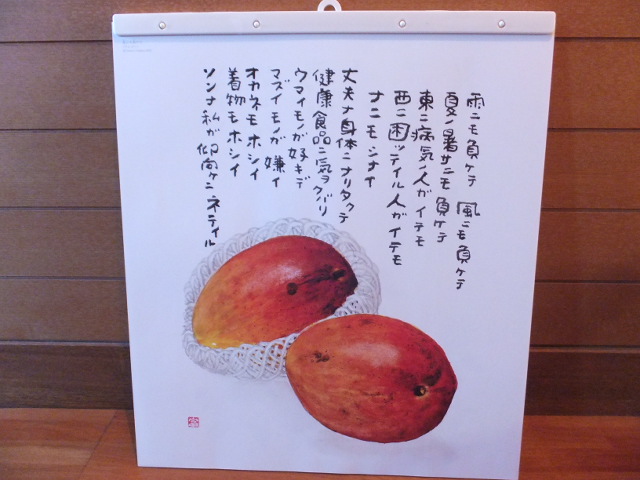 雨ニモ負ケテ 風ニモ負ケテ
夏ノ暑サニモ 負ケテ
東ニ病気ノ人ガ イテモ
西ニ困ッテイル 人ガ イテモ
ナニモ シナイ
丈夫ナ身体ニナリタクテ
健康食品ニ気ヲクバリ
ウマイモノガ好キデ
マズイモノガ 嫌イ
オカネモ ホシイ
着物モ ホシイ
ソンナ私が 仰向ケニ ネテイル